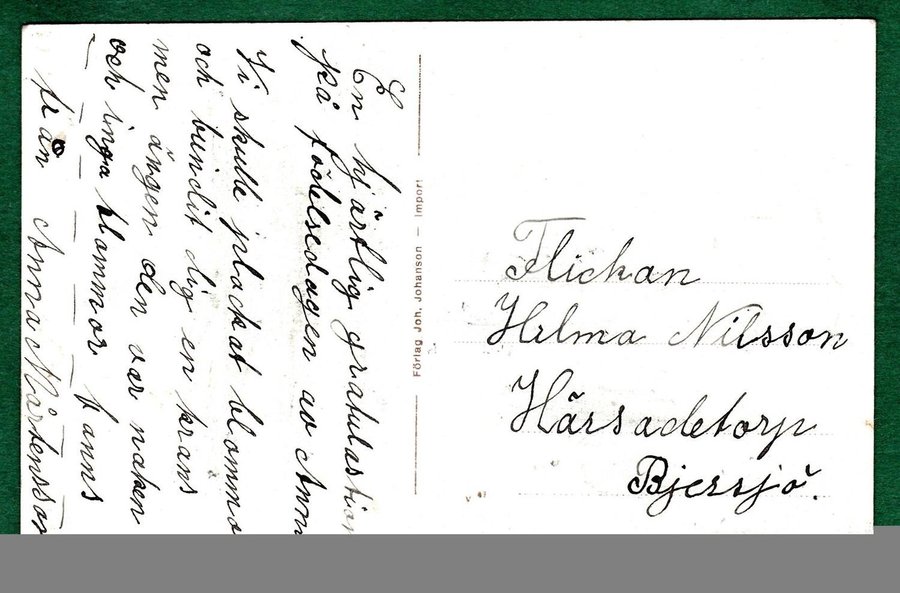 En hjärtlig gratulastion
på födelsedagen av Ann
Vi skulle plockat blommo
och bundit dig en krans
men ängen den var naken
och inga blommor fanns
från Anna Mårtensson
Förlag Joh. Johanson – Import
Flickan
Helma Nilsson
Härsadetorp
Bjersjö.